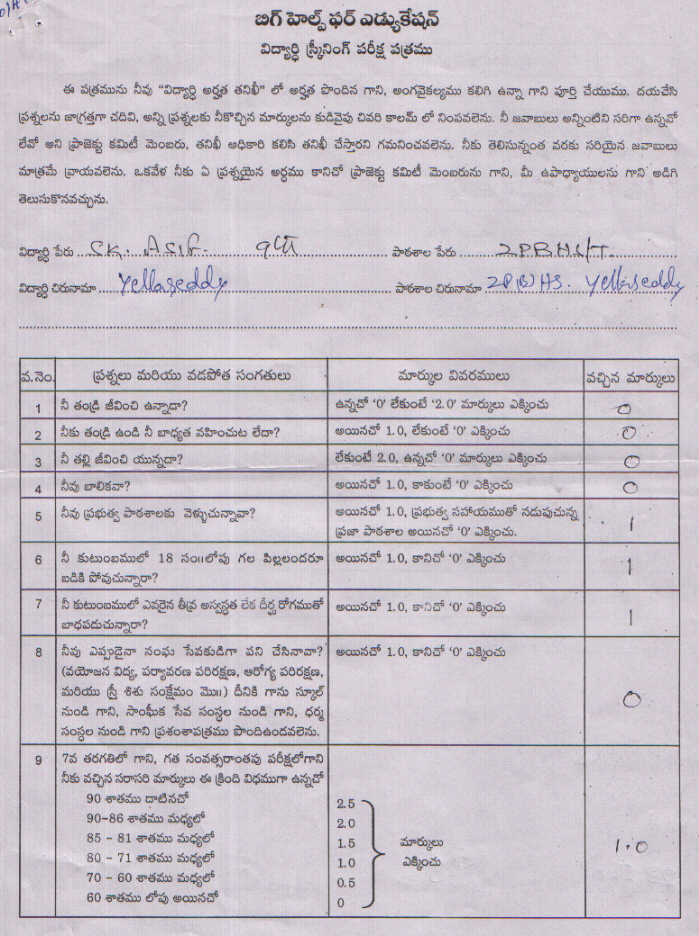 బిగ్ హెల్ప్ ఫర్ ఎడ్యుకేషన్
విద్యార్ధి స్క్రీనింగ్ పరీక్ష పత్రము
ఈ పత్రమును నీవు "విద్యార్ధి అర్హత తనిఖీ" లో అర్హత పొందిన గాని, అంగవైకల్యము కలిగి ఉన్నా గాని పూర్తి చేయుము. దయచేసి
ప్రశ్నలను జాగ్రత్తగా చదివి, అన్ని ప్రశ్నలకు నీకొచ్చిన మార్కులను కుడివైపు చివరి కాలమ్ లో నింపవలెను. నీ జవాబులు అన్నింటిని సరిగా ఉన్నవో
లేవో అని ప్రాజెక్టు కమిటీ మెంబరు, తనిఖీ అధికారి కలిసి తనిఖీ చేస్తారని గమనించవలెను. నీకు తెలిసున్నంత వరకు సరియైన జవాబులు
మాత్రమే వ్రాయవలెను. ఒకవేళ నీకు ఏ ప్రశ్నయైన అర్ధము కానిచో ప్రాజెక్టు కమిటీ మెంబరును గాని, మీ ఉపాధ్యాయులను గాని అడిగి
తెలుసుకొనవచ్చును.
విద్యార్ధి పేరు SK. ASIF. 9th పాఠశాల పేరు ZPBHS/T.
విద్యార్ధి చిరునామా Yellareddy పాఠశాల చిరునామా ZP(B)HS. Yellareddy
వ.నెం. ప్రశ్నలు మరియు వడపోత సంగతులు మార్కుల వివరములు వచ్చిన మార్కులు
1 నీ తండ్రి జీవించి ఉన్నాడా? ఉన్నచో '0' లేకుంటే '2.0' మార్కులు ఎక్కించు 0
2 నీకు తండ్రి ఉండి నీ బాధ్యత వహించుట లేదా? అయినచో 1.0, లేకుంటే '0' ఎక్కించు 0
3 నీ తల్లి జీవించి యున్నదా? లేకుంటే 2.0, ఉన్నచో '0' మార్కులు ఎక్కించు 0
4 నీవు బాలికవా? అయినచో 1.0, కాకుంటే '0' ఎక్కించు 0
5 నీవు ప్రభుత్వ పాఠశాలకు వెళ్ళుచున్నావా? అయినచో 1.0, ప్రభుత్వ సహాయముతో నడుపుచున్న 1
ప్రజా పాఠశాల అయినచో '0' ఎక్కించు.
6 నీ కుటుంబములో 18 సం॥లోపు గల పిల్లలందరూ అయినచో 1.0, కానిచో '0' ఎక్కించు 1
బడికి పోవుచున్నారా?
7 నీ కుటుంబములో ఎవరైన తీవ్ర అస్వస్థత లేక దీర్ఘ రోగముతో అయినచో 1.0, కానిచో '0' ఎక్కించు 1
బాధపడుచున్నారా?
8 నీవు ఎప్పుడైనా సంఘ సేవకుడిగా పని చేసినావా? అయినచో 1.0, కానిచో '0' ఎక్కించు 0
(వయోజన విద్య, పర్యావరణ పరిరక్షణ, ఆరోగ్య పరిరక్షణ,
మరియు స్త్రీ శిశు సంక్షేమం మొ॥) దీనికి గాను స్కూల్
నుండి గాని, సాంఘీక సేవ సంస్థల నుండి గాని, ధర్మ
సంస్థల నుండి గాని ప్రశంశాపత్రము పొందిఉండవలెను.
9 7వ తరగతిలో గాని, గత సంవత్సరాంతపు పరీక్షలోగాని
నీకు వచ్చిన సరాసరి మార్కులు ఈ క్రింది విధముగా ఉన్నచో
90 శాతము దాటినచో 2.5
90-86 శాతము మధ్యలో 2.0
85 - 81 శాతము మధ్యలో 1.5 మార్కులు 1.0
80 - 71 శాతము మధ్యలో 1.0 ఎక్కించు
70 - 60 శాతము మధ్యలో 0.5
60 శాతము లోపు అయినచో 0